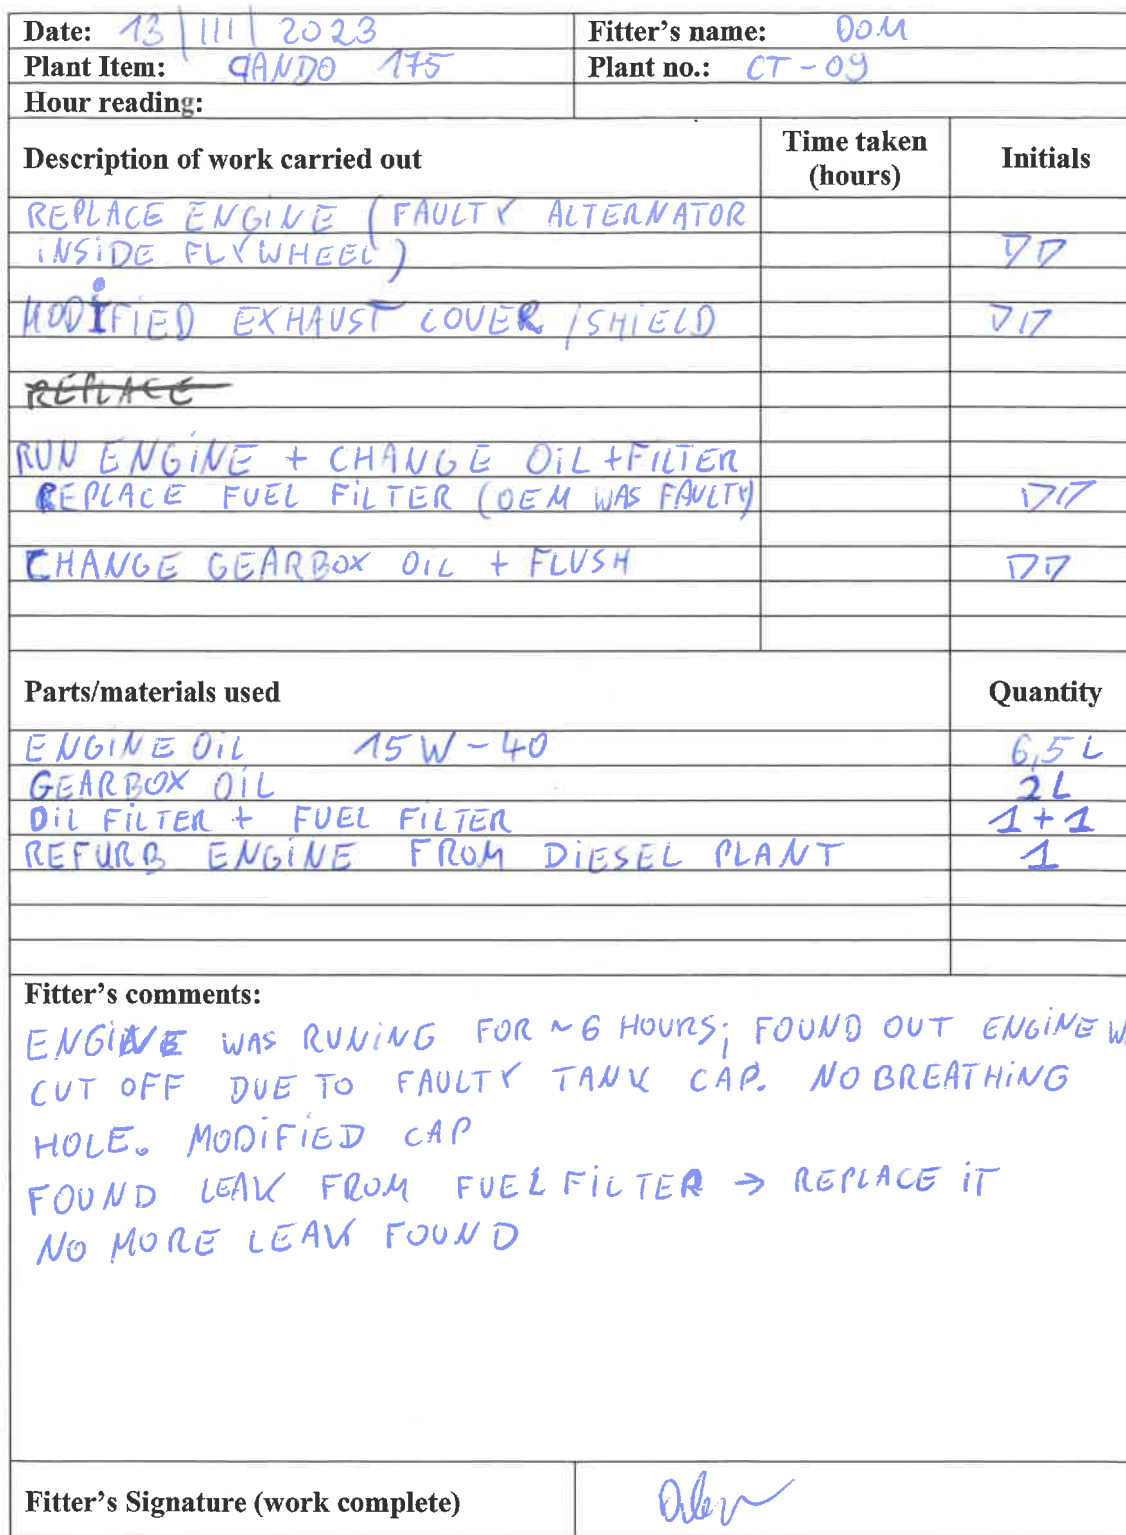 Date: 13 | III | 2023 Fitter's name: DOM
Plant Item: CANDO 175 Plant no.: CT-09
Hour reading:
Description of work carried out Time taken (hours) Initials
REPLACE ENGINE (FAULTY ALTERNATOR
INSIDE FLYWHEEL) DD
MODIFIED EXHAUST COVER / SHIELD DD
REPLACE
RUN ENGINE + CHANGE OIL + FILTER
REPLACE FUEL FILTER (OEM WAS FAULTY) DD
CHANGE GEARBOX OIL + FLUSH DD
Parts/materials used Quantity
ENGINE OIL 15W-40 6,5 L
GEARBOX OIL 2L
OIL FILTER + FUEL FILTER 1+1
REFURB ENGINE FROM DIESEL PLANT 1
Fitter's comments:
ENGINE WAS RUNING FOR ~6 HOURS; FOUND OUT ENGINE W
CUT OFF DUE TO FAULTY TANK CAP. NO BREATHING
HOLE. MODIFIED CAP
FOUND LEAK FROM FUEL FILTER → REPLACE IT
NO MORE LEAK FOUND
Fitter's Signature (work complete)